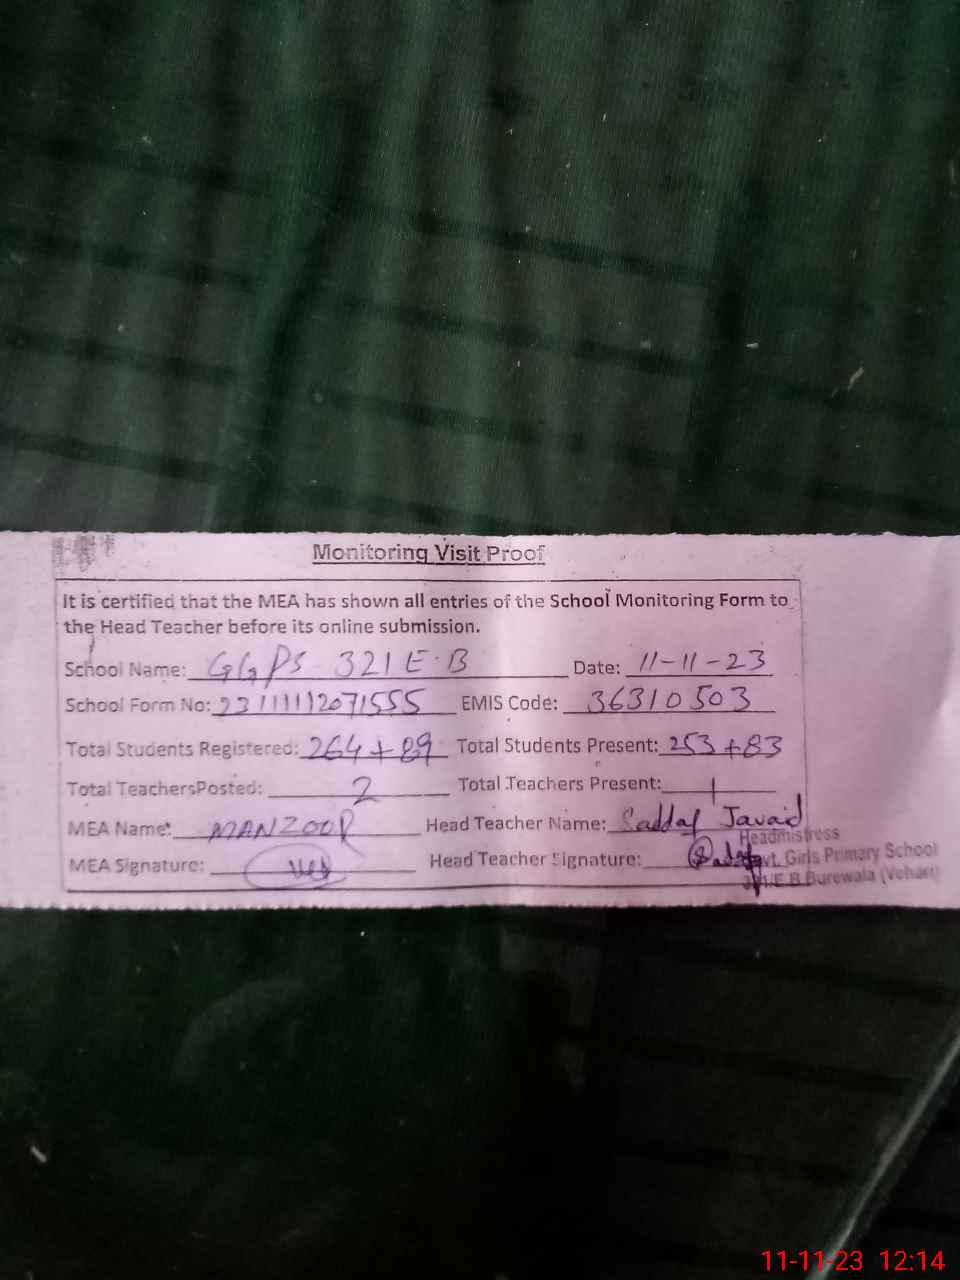 Monitoring Visit Proof
It is certified that the MEA has shown all entries of the School Monitoring Form to
the Head Teacher before its online submission.
School Name: GGPS 321 E.B Date: 11-11-23
School Form No: 231111112071555 EMIS Code: 36310503
Total Students Registered: 264+89 Total Students Present: 253+83
Total TeachersPosted: 2 Total Teachers Present: 1
MEA Name: MANZOOR Head Teacher Name: Saddaf Javaid
Headmistress
MEA Signature: Head Teacher Signature: Govt. Girls Primary School
321/E.B Burewala (Vehari)
11-11-23 12:14